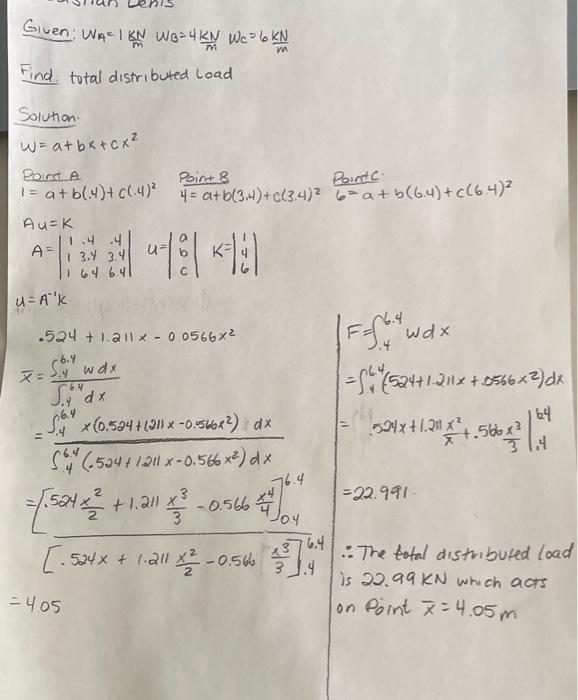 Denis
Given: WA=1 KN/m WB=4 KN/m Wc=6 KN/m
Find: total distributed load
Solution:
W = a+bx+cx²
Point A Point B Point C:
1 = a+b(.4)+c(.4)² 4 = a+b(3.4)+c(3.4)² 6 = a+b(6.4)+c(6.4)²
Au=K
A = |1 .4 .4| u = |a| K = |1|
|1 3.4 3.4| |b| |4|
|1 6.4 6.4| |c| |6|
u = A⁻¹K
.524 + 1.211x - 0.0566x²
x̄ = ∫.4^6.4 w dx / ∫.4^6.4 dx
= ∫.4^6.4 x(0.524+1.211x-0.566x²) dx / ∫.4^6.4 (.524+1.211x-0.566x²)dx
= [.524 x²/2 + 1.211 x³/3 - 0.566 x⁴/4]0.4^6.4
/ [.524x + 1.211 x²/2 - 0.566 x³/3].4^6.4
= 4.05
F = ∫.4^6.4 wdx
= ∫.4^6.4 (524+1.211x+.0566x²)dx
= .524x+1.211 x²/x + .566 x³/3 |.4^6.4
= 22.991.
∴ The total distributed load
is 22.99 KN which acts
on Point x̄ = 4.05m